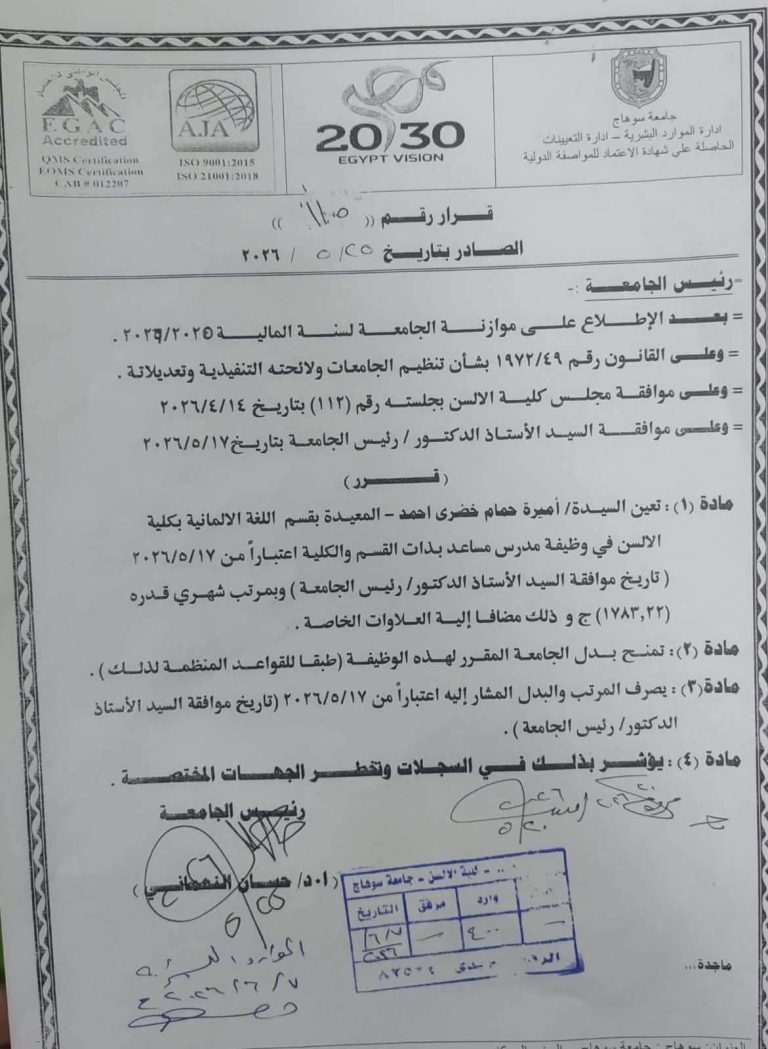 المجلس الوطني للاعتماد
EGAC
Accredited
QMS Certification
EOMS Certification
CAB # 012207
AJA
ISO 9001:2015
ISO 21001:2018
مصر
2030
EGYPT VISION
جامعة سوهاج
ادارة الموارد البشرية – ادارة التعيينات
الحاصلة علي شهادة الاعتماد للمواصفة الدولية
قرار رقم (( ))
الصادر بتاريخ ٢٥/ ٥ / ٢٠٢٦
-رئيس الجامعة :-
= بعد الإطلاع على موازنة الجامعة لسنة المالية ٢٠٢٦/٢٠٢٥ .
= وعلى القانون رقم ١٩٧٢/٤٩ بشأن تنظيم الجامعات ولائحته التنفيذية وتعديلاتة .
= وعلى موافقة مجلس كلية الالسن بجلسته رقم (١١٢) بتاريخ ٢٠٢٦/٤/١٤
= وعلى موافقة السيد الأستاذ الدكتور / رئيس الجامعة بتاريخ٢٠٢٦/٥/١٧
( قرر )
مادة (١) : تعين السيدة/ أميرة حمام خضرى احمد – المعيدة بقسم اللغة الالمانية بكلية
الالسن في وظيفة مدرس مساعد بذات القسم والكلية اعتباراً من ٢٠٢٦/٥/١٧
( تاريخ موافقة السيد الأستاذ الدكتور/ رئيس الجامعة ) وبمرتب شهري قدره
(١٧٨٣,٢٢) ج و ذلك مضافا إلية العلاوات الخاصة .
مادة (٢): تمنح بدل الجامعة المقرر لهذه الوظيفة (طبقا للقواعد المنظمة لذلك ) .
مادة(٣) : يصرف المرتب والبدل المشار إليه اعتباراً من ٢٠٢٦/٥/١٧ (تاريخ موافقة السيد الأستاذ
الدكتور/ رئيس الجامعة ) .
مادة (٤) : يؤشر بذلك في السجلات وتخطر الجهات المختصة .
رئيس الجامعة
( ا.د/ حسان النعماني )
كلية الالسن - جامعة سوهاج
وارد مرفق التاريخ
٤٠٠ — ٦/٧
الموارد البشرية
٢٠٢٦/٦/٧
ماجدة...